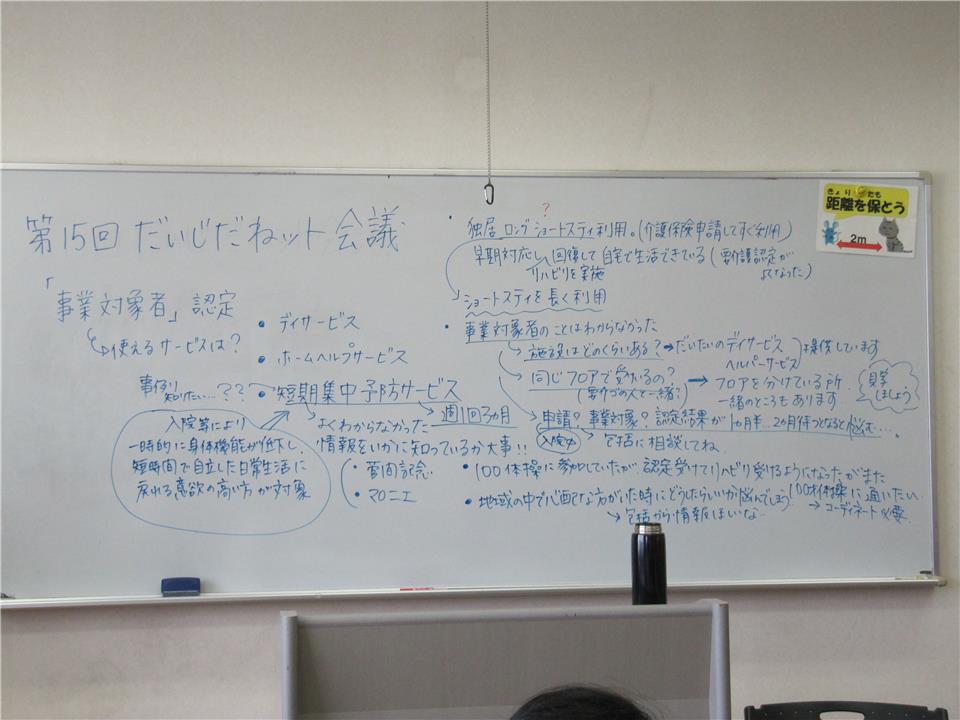 第15回 だいじだねット会議
「事業対象者」認定
使えるサービスは?
・デイサービス
・ホームヘルプサービス
・短期集中予防サービス
事例り知りたい…??
週1回3ヵ月
よくわからなかった
情報をいかに知っているか大事!!
・菅間記念
・マロニエ
入院等により
一時的に身体機能が低下し、
短時間で自立した日常生活に
戻れる意欲の高い方が対象
?
・独居 ロングショートスティ利用。(介護保険申請してすぐ利用)
早期対応し、回復して自宅で生活できている(要介護認定が
リハビリを実施
よくなった)
ショートスティを長く利用
・事業対象者のことはわからなかった
施設はどのくらいある?→だいたいのデイサービス
ヘルパーサービス
提供しています
同じフロアで受けれるの?
(要カイゴの人と一緒?)
→フロアを分けている所
一緒のところもあります
見学しましょう
申請?事業対象?認定結果が1ヵ月半…2ヵ月待つとなると悩む….
入院中
包括に相談してね
・100体操に参加していたが、認定受けてリハビリ受けるようになったがまた
100体操に通いたい
→コーディネート必要
・地域の中で心配な方がいた時にどうしたらいいか悩んでしまう
→包括から情報ほしいな
きょり たも
距離を保とう
2m